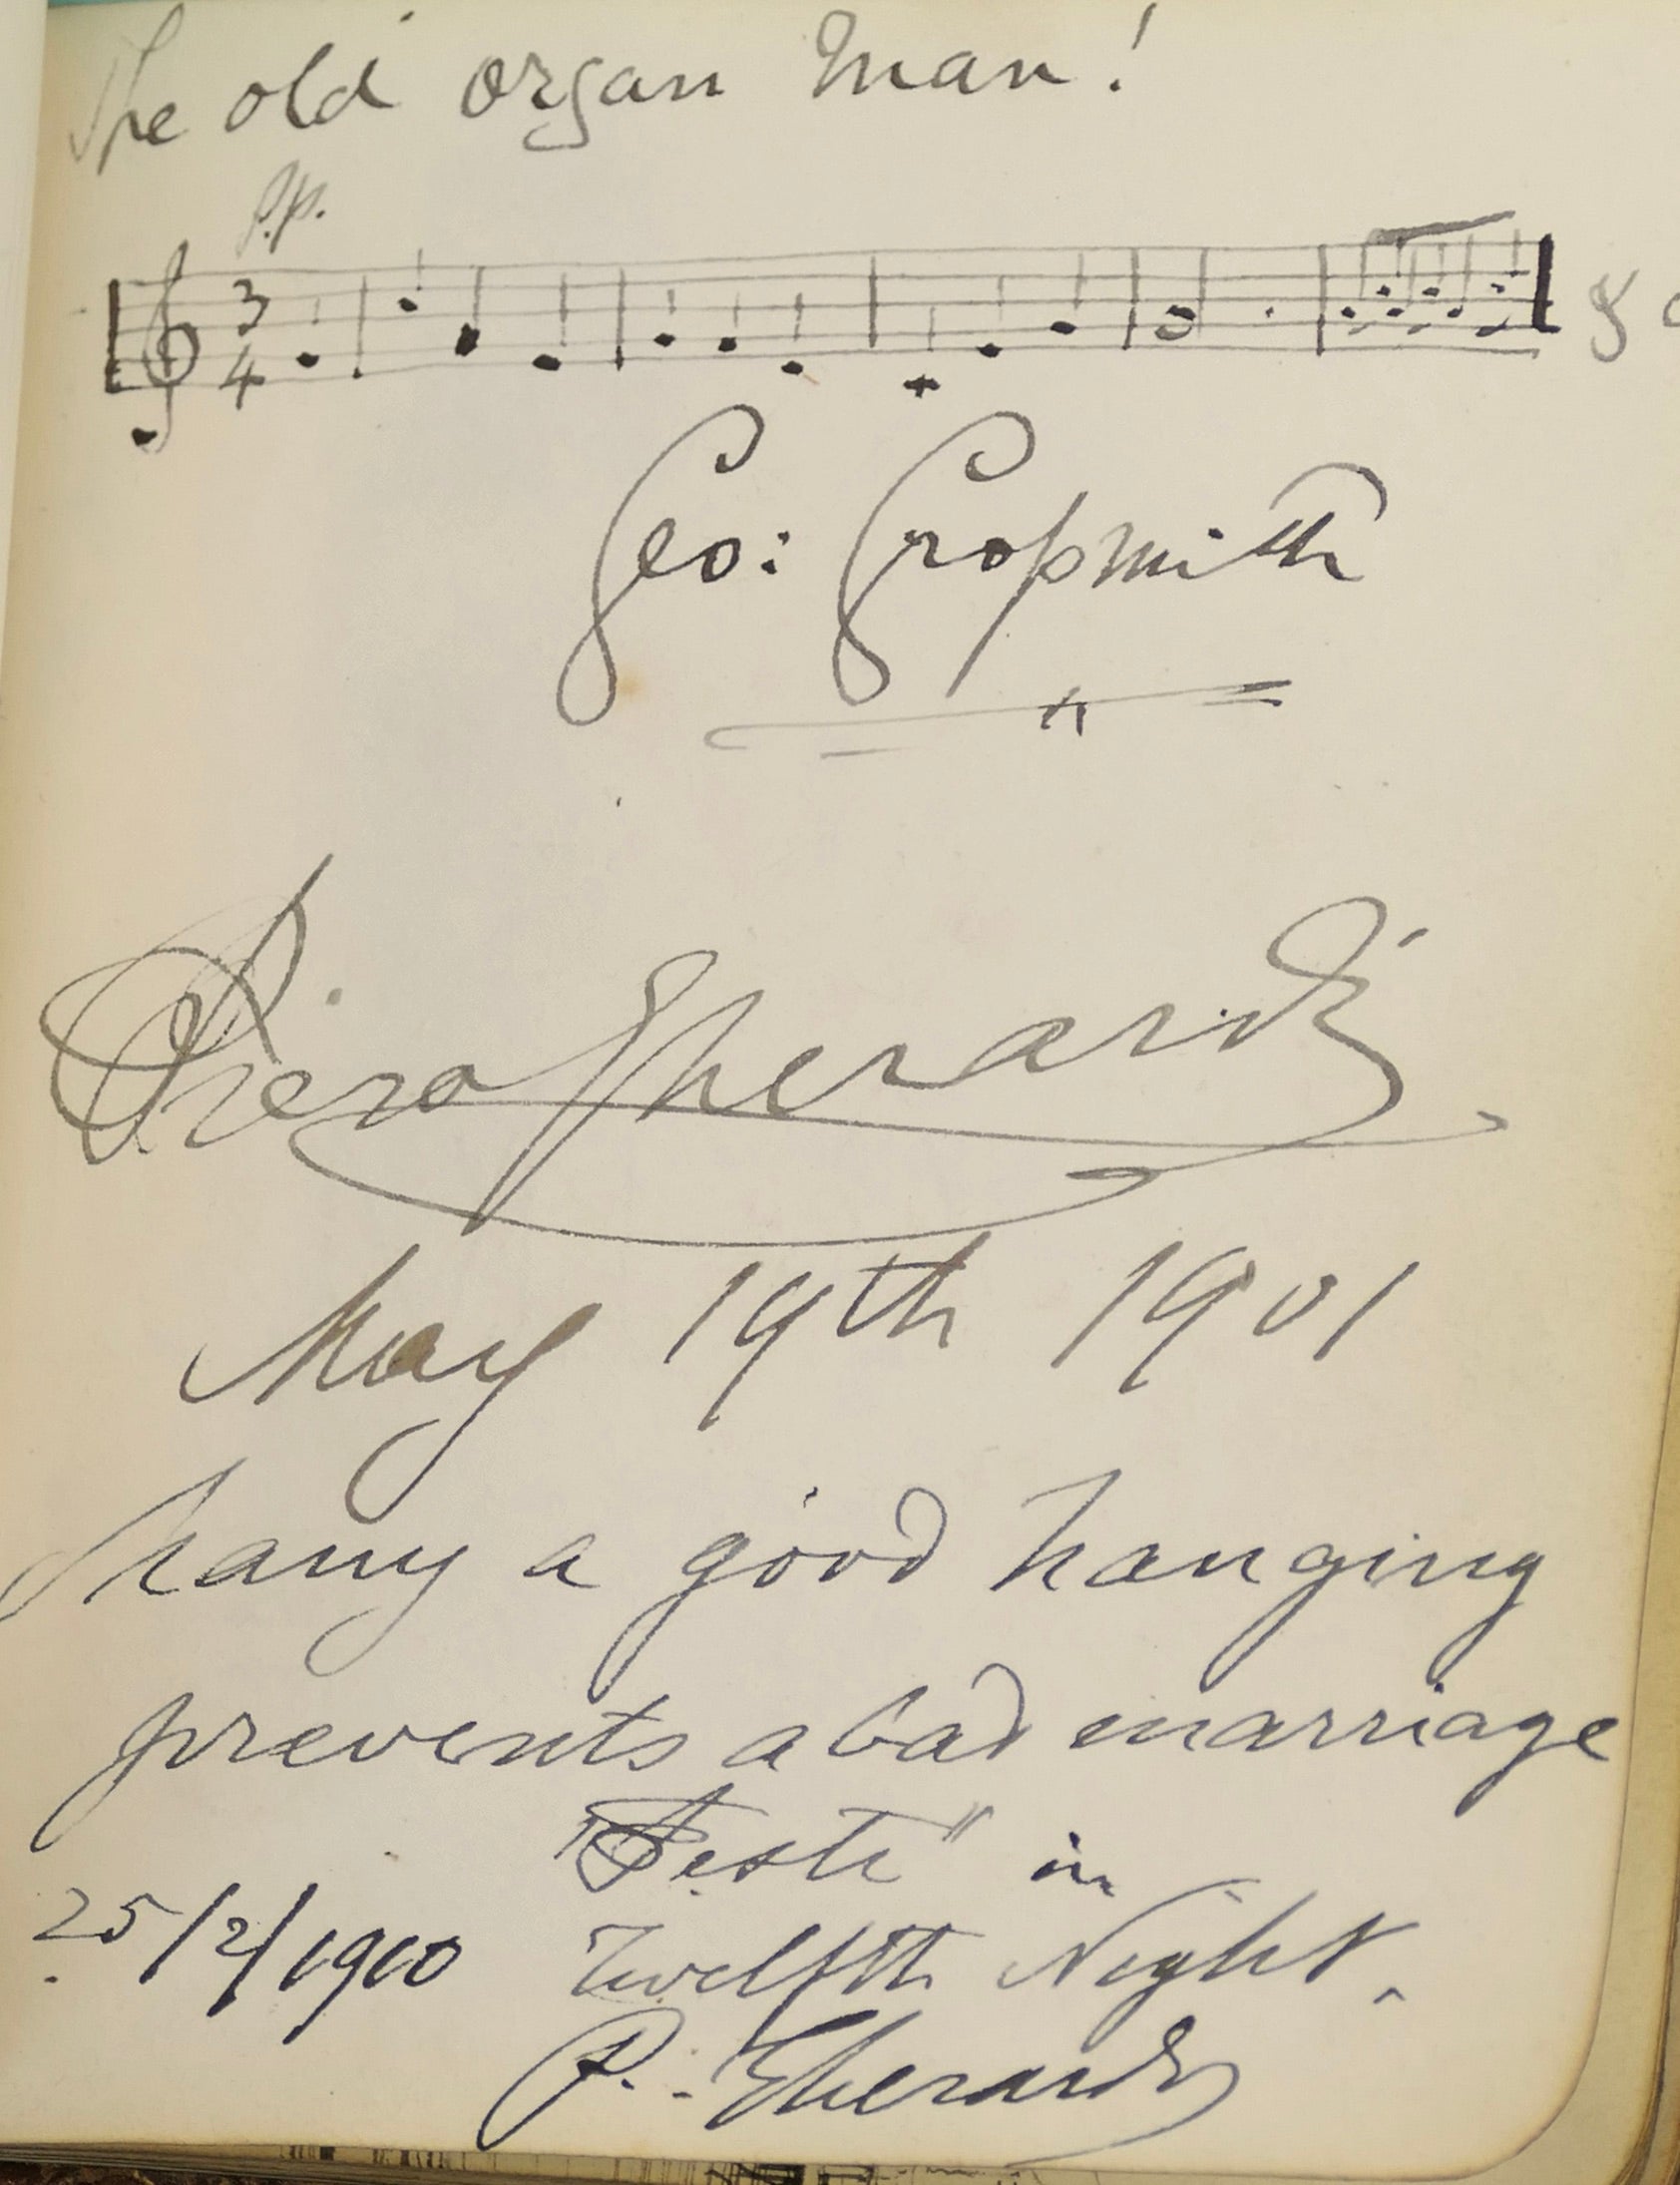 The old organ man!
p.p.
3
4
&
Geo: Grossmith
Piero Gherardi
May 19th 1901
Many a good hanging
prevents a bad marriage
"Feste" in
25/2/1900 Twelfth Night.
P. Gherardi